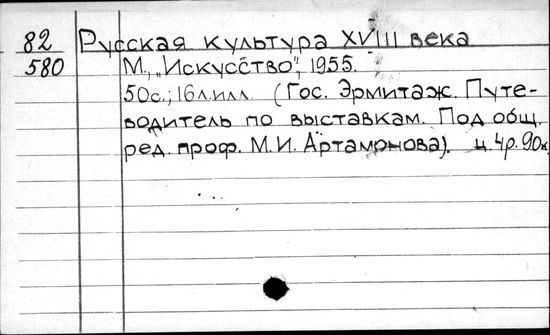 82 Русская культура XVIII века
580 М., „Искусство", 1955.
50с.; 16л.илл. (Гос. Эрмитаж. Путе-
водитель по выставкам. Под общ.
ред. проф. М.И. Артамонова). ц. 4р. 90к